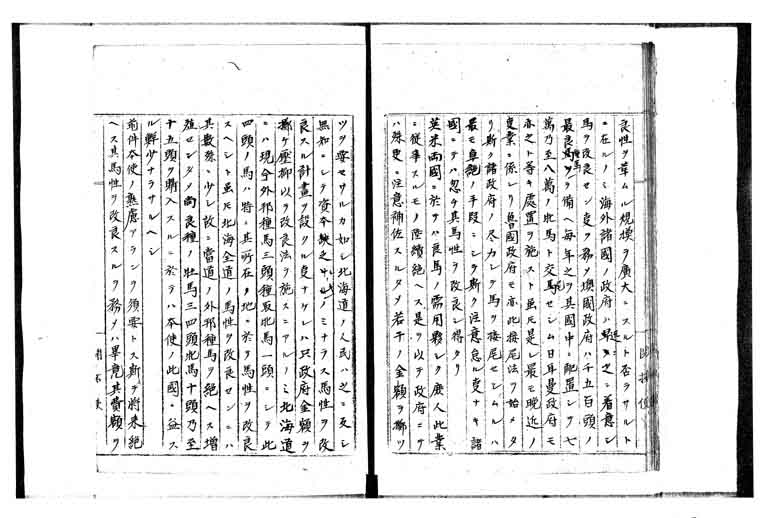 良性ヲ革ムル規模ヲ廣大ニスルト否ラサルト
ニ在ルノミ海外諸國ノ政府ハ之ニ着意シ
馬ヲ改良セン事ヲ務メ墺國政府ハ千五百頭ノ
最良種馬ヲ備ヘ毎年之ヲ其國中ニ配置シテ七
萬乃至八萬ノ牝馬ト交尾セシム日耳曼政府モ
亦之ト等キ處置ヲ施スト虽モ是レ最モ晩近ノ
事業ニ係レリ魯國政府モ亦此接尾法ヲ始メタ
リ斯ク諸政府ノ尽力シテ馬ヲ接尾セシムルハ
最モ卓絶ノ手段ニシテ斯ク注意怠ル事ナキ諸
國ニテハ忽チ其馬性ヲ改良シ得タリ
英米両國ニ於テハ良馬ノ需用夥シク庶人此業
ニ從事スルモノ陸續絶ヘス是ヲ以テ政府ニテ
ハ殊更ニ注意補佐スルタメ若干ノ金額ヲ擲ツ
ツヲ要セサルカ如シ北海道ノ人民ハ之ニ反シ
無知ニシテ資本缺乏ノミナラス馬性ヲ改
良スル計畫ヲ設クル事ナケレハ只政府金額ヲ
擲ケ壓抑以テ改良法ヲ施スニアルノミ北海道
ニハ現今外邦種馬三頭種取牝馬一頭ニシテ此
四頭ノ馬ハ特ニ其所在ノ地ニ於テ馬性ヲ改良
スヘシト虽モ北海全道ノ馬性ヲ改良センニハ
其数殊ニ少シ故ニ當道ニ外邦種馬ヲ絶ヘス増
殖センタメ尚良種ノ牡馬三四頭牝馬十頭乃至
十五頭ヲ購入スルニ於テハ本使ノ此國ニ益ス
ル鮮少ナラサルヘシ
前件本使ノ熟慮アラン事ヲ須要トス斯ヲ将来絶
ヘス其馬性ヲ改良スルヲ務メハ畢竟其費額ヲ
開拓使
開拓使